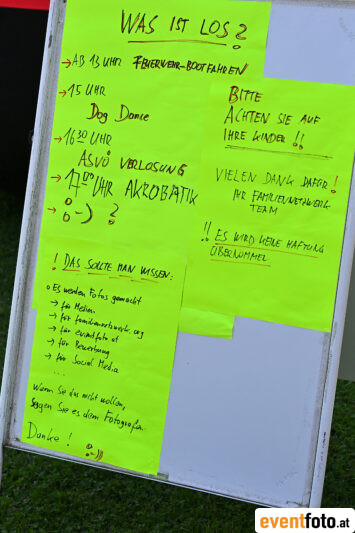 WAS IST LOS?
→ AB 13 UHR FEUERWEHR-BOOTFAHREN
→ 15 UHR
Dog Dance
→ 16³⁰ UHR
ASVÖ VERLOSUNG
→ 17⁰⁰ UHR AKROBATIK
→ :-) ?
! DAS SOLLTE MAN WISSEN:
Es werden Fotos gemacht
→ für Medien
→ für familiennetzwerk.org
→ für eventfoto.at
→ für Bewerbung
→ für Social Media
...
Wenn Sie das nicht wollen,
sagen Sie es dem Fotografen.
Danke! :-)))
BITTE
ACHTEN SIE AUF
IHRE KINDER!!
VIELEN DANK DAFÜR!
IHR FAMILIENNETZWERK
TEAM
!! ES WIRD KEINE HAFTUNG
ÜBERNOMMEN
eventfoto.at